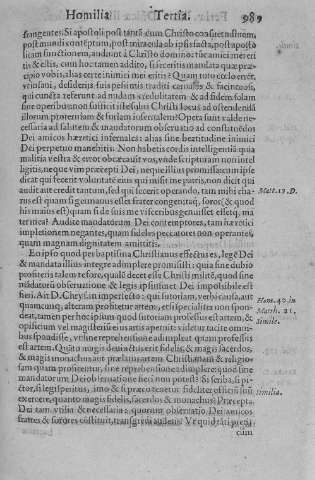 Homilia Tertia. 989
frangentes: Si apostoli post tantā cum Christo consuetudinem,
post mundi contēptum, post miracula ab ipsis facta, post aposto
licam functionem, audiunt à Christo domino: tūc amici mei eri
tis & estis, cum hoc tamen addito, si feceritis mandata quæ præ-
cipio vobis, alias certe inimici mei eritis: Quam tuto
desiderijs suis pessimis traditi carnales & facinorosi,
qui cuncta referunt ad nudam credulitatem & ad fidem solam
sine operibus non sufficit illis solus Christi locus ad ostendendū
illorum proteruiam & fucum infernalem? Opera sunt valde ne
cessaria ad salutem & mandatorum obseruatio ad constituēdos
Dei amicos hæretici infernales: alias sine beatitudine inimici
Dei perpetuo manebitis. Non habetis cordis intelligentiā quia
malitia vestra & error obcæcauit vos, vnde scripturam non intel
ligitis, neque vim præcepti Dei, neque illius promissum cum ipse
dicat qui fecerit voluntatē eius qui misit me patris, non dicit qui
audit aut credit tantum, sed qui fecerit operando, tam mihi cha-
rus est quam si germanus esset frater congenitus, soror, & quod
his maius est) quam si de suis me visceribus genuisset esset
ternitus? Audite mandatorum Dei contemptores, tam hæretici
impletionem negantes, quam fideles peccatores non operantes,
quam magnam dignitatem amittitis.
Eo ipso quod per baptisma Christianus effectus es, legē Dei
& mandata illius integre adimplere promisisti: quia sine dubio
profiteris talem te fore, qualē decet esse Christi militē, quod sine
mādatorū obseruatione & legis ipsius
fieri. Ait D. Chrys. in imperfecto: qui sutoriam, verbi causa, aut
quamcunq; alteram profitetur artem, etsi specialiter non spon-
deat, tamen per hoc ipsum quod sutorem professus est artem, &
opificium vel magisterium eius artis aperuit: videtur tacite omni-
bus spondisse, vt sine reprehensione adimpleat quam professus
est artem. Quāto magis deuicti fuerit fidelis, & magis sacerdos,
& magis monachus aut prælatus artem Christianam & religio-
sam quam profitentur, sine reprehensione adimplere: quod sine
mandatorum Dei obseruatione fieri non potest? Si scriba, si pi-
ctor, si legisperitus, imo & si præco tenetur fideliter officium suū
exercere, quanto magis fidelis, sacerdos & monachus? Præcepta
Dei tam vtilia & necessaria, quorum obseruatio Dei amicos
fratres & sorores constituit, transgredi audent? Verquid tāti preci
cum
Matt. 12. D.
Hom. 40 in
Matth. 21.
Simile.
Similia.